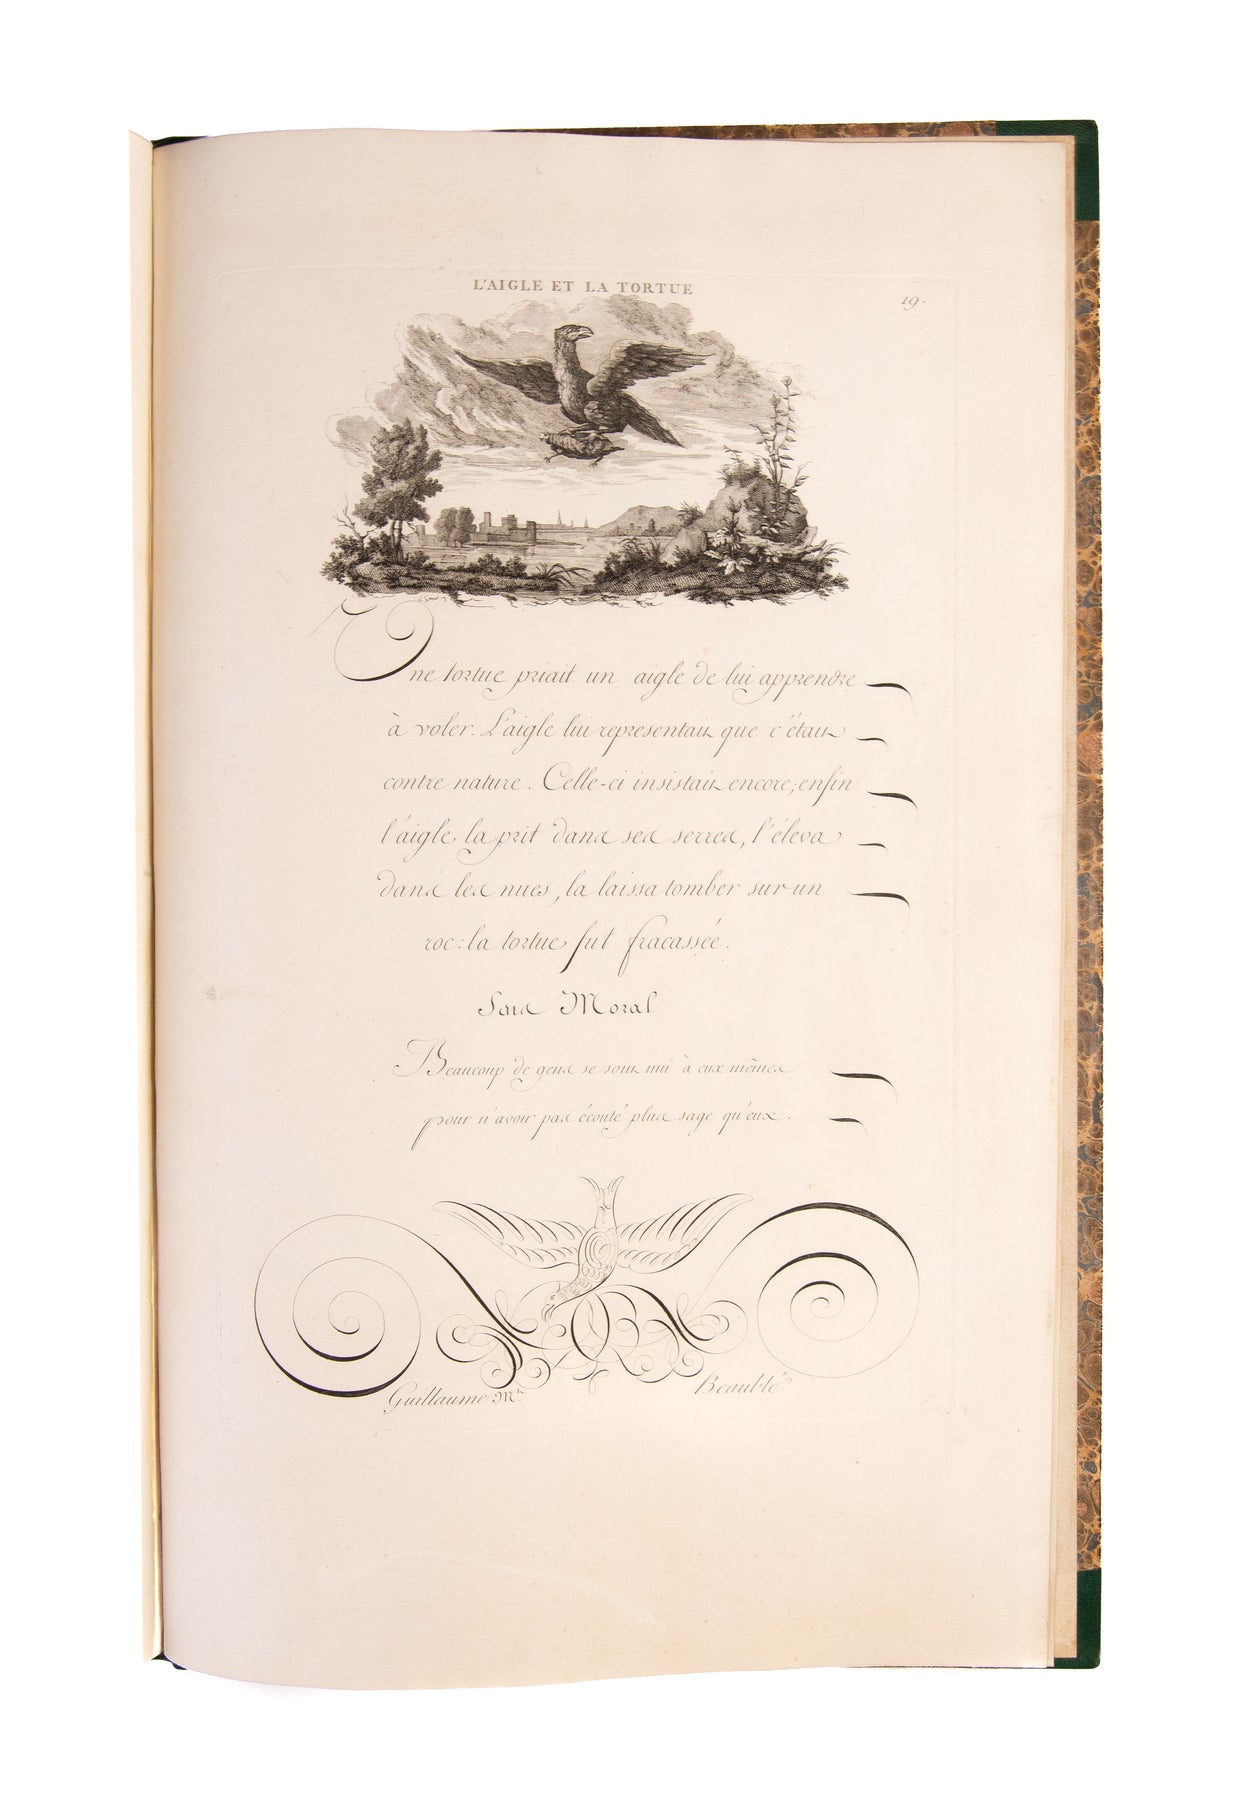 L'AIGLE ET LA TORTUE
19.
Une tortue priait un aigle de lui apprendre
à voler. L'aigle lui representait que c'était
contre nature. Celle-ci insistait encore; enfin
l'aigle la prit dans ses serres, l'éleva
dans les nues, la laissa tomber sur un
roc: la tortue fut fracassée.
Sens Moral
Beaucoup de gens se sont nui à eux mêmes
pour n'avoir pas écouté plus sage qu'eux.
Guillaume Mtn. Beaublé